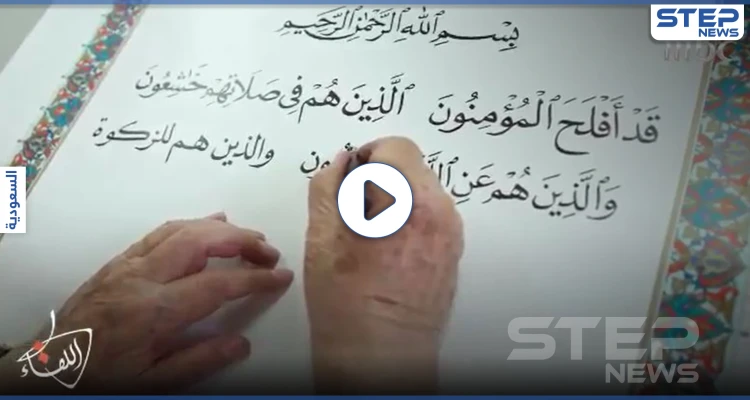 STEP
NEWS
mbc
بِسْمِ ٱللَّهِ ٱلرَّحْمَٰنِ ٱلرَّحِيمِ
قَدْ أَفْلَحَ ٱلْمُؤْمِنُونَ ٱلَّذِينَ هُمْ فِى صَلَاتِهِمْ خَٰشِعُونَ
وَٱلَّذِينَ هُمْ عَنِ والذين هم للزكوة
السعودية
اللقاء
STEP
NEWS